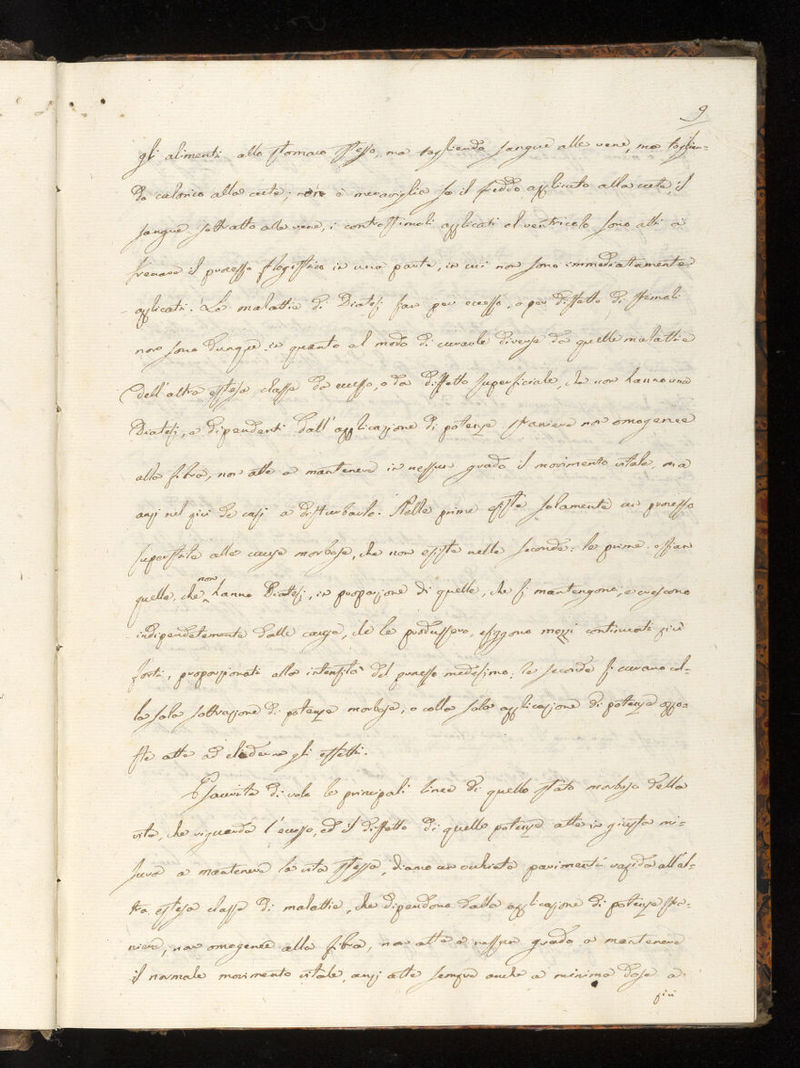 9
gli alimenti allo stomaco stesso, ma togliendo sangue alle vene, ma toglien-
do calorico alla cute; non è meraviglia se il freddo applicato alla cute, il
sangue sottratto alle vene, i controstimoli applicati al ventricolo sono atti a
frenare il processo flogistico in una parte, in cui non sono immediattamente
applicati. Le malattie di Diatesi sian per eccesso, o per diffetto di stimoli
non sono dunque in quanto al modo di curarle diverse da quelle malattie
dell'altra estesa classe da eccesso, o da diffetto superficiale, che non hanno una
Diatesi, o dipendenti dall'applicazione di potenze straniere non omogenee
alla fibra, non atte a mantenere in nessun grado il movimento vitale, ma
anzi nel più de' casi a disturbarlo. Nelle prime esiste solamente un processo
superstite alle cause morbose, che non esiste nelle seconde: le prime ossian
quelle, che non hanno Diatesi, in proporzione di quelle, che si mantengono, e crescono
indipendetemente dalle cause, che le produssero, esiggono mezzi continuati più
forti, proporzionati alla intensità del processo medesimo; le seconde si curano col-
la sola sottrazione di potenze morbose, o colla sola applicazione di potenze oppo-
ste atte ad eluderne gli effetti.
Esaurite di volo le principali linee di quello stato morboso della
vita, che riguarda l'eccesso, ed il diffetto di quelle potenze atte in giusta mi-
sura a mantenere la vita stessa, diamo un occhiata parimenti rapida all'al-
tra estesa classe di malattie, che dipendono dalla applicazione di potenze stra-
niere, non omogenee alla fibra, non atte a nessun grado a mantenere
il normale movimento vitale, anzi atte sempre anche a minima dose a
più